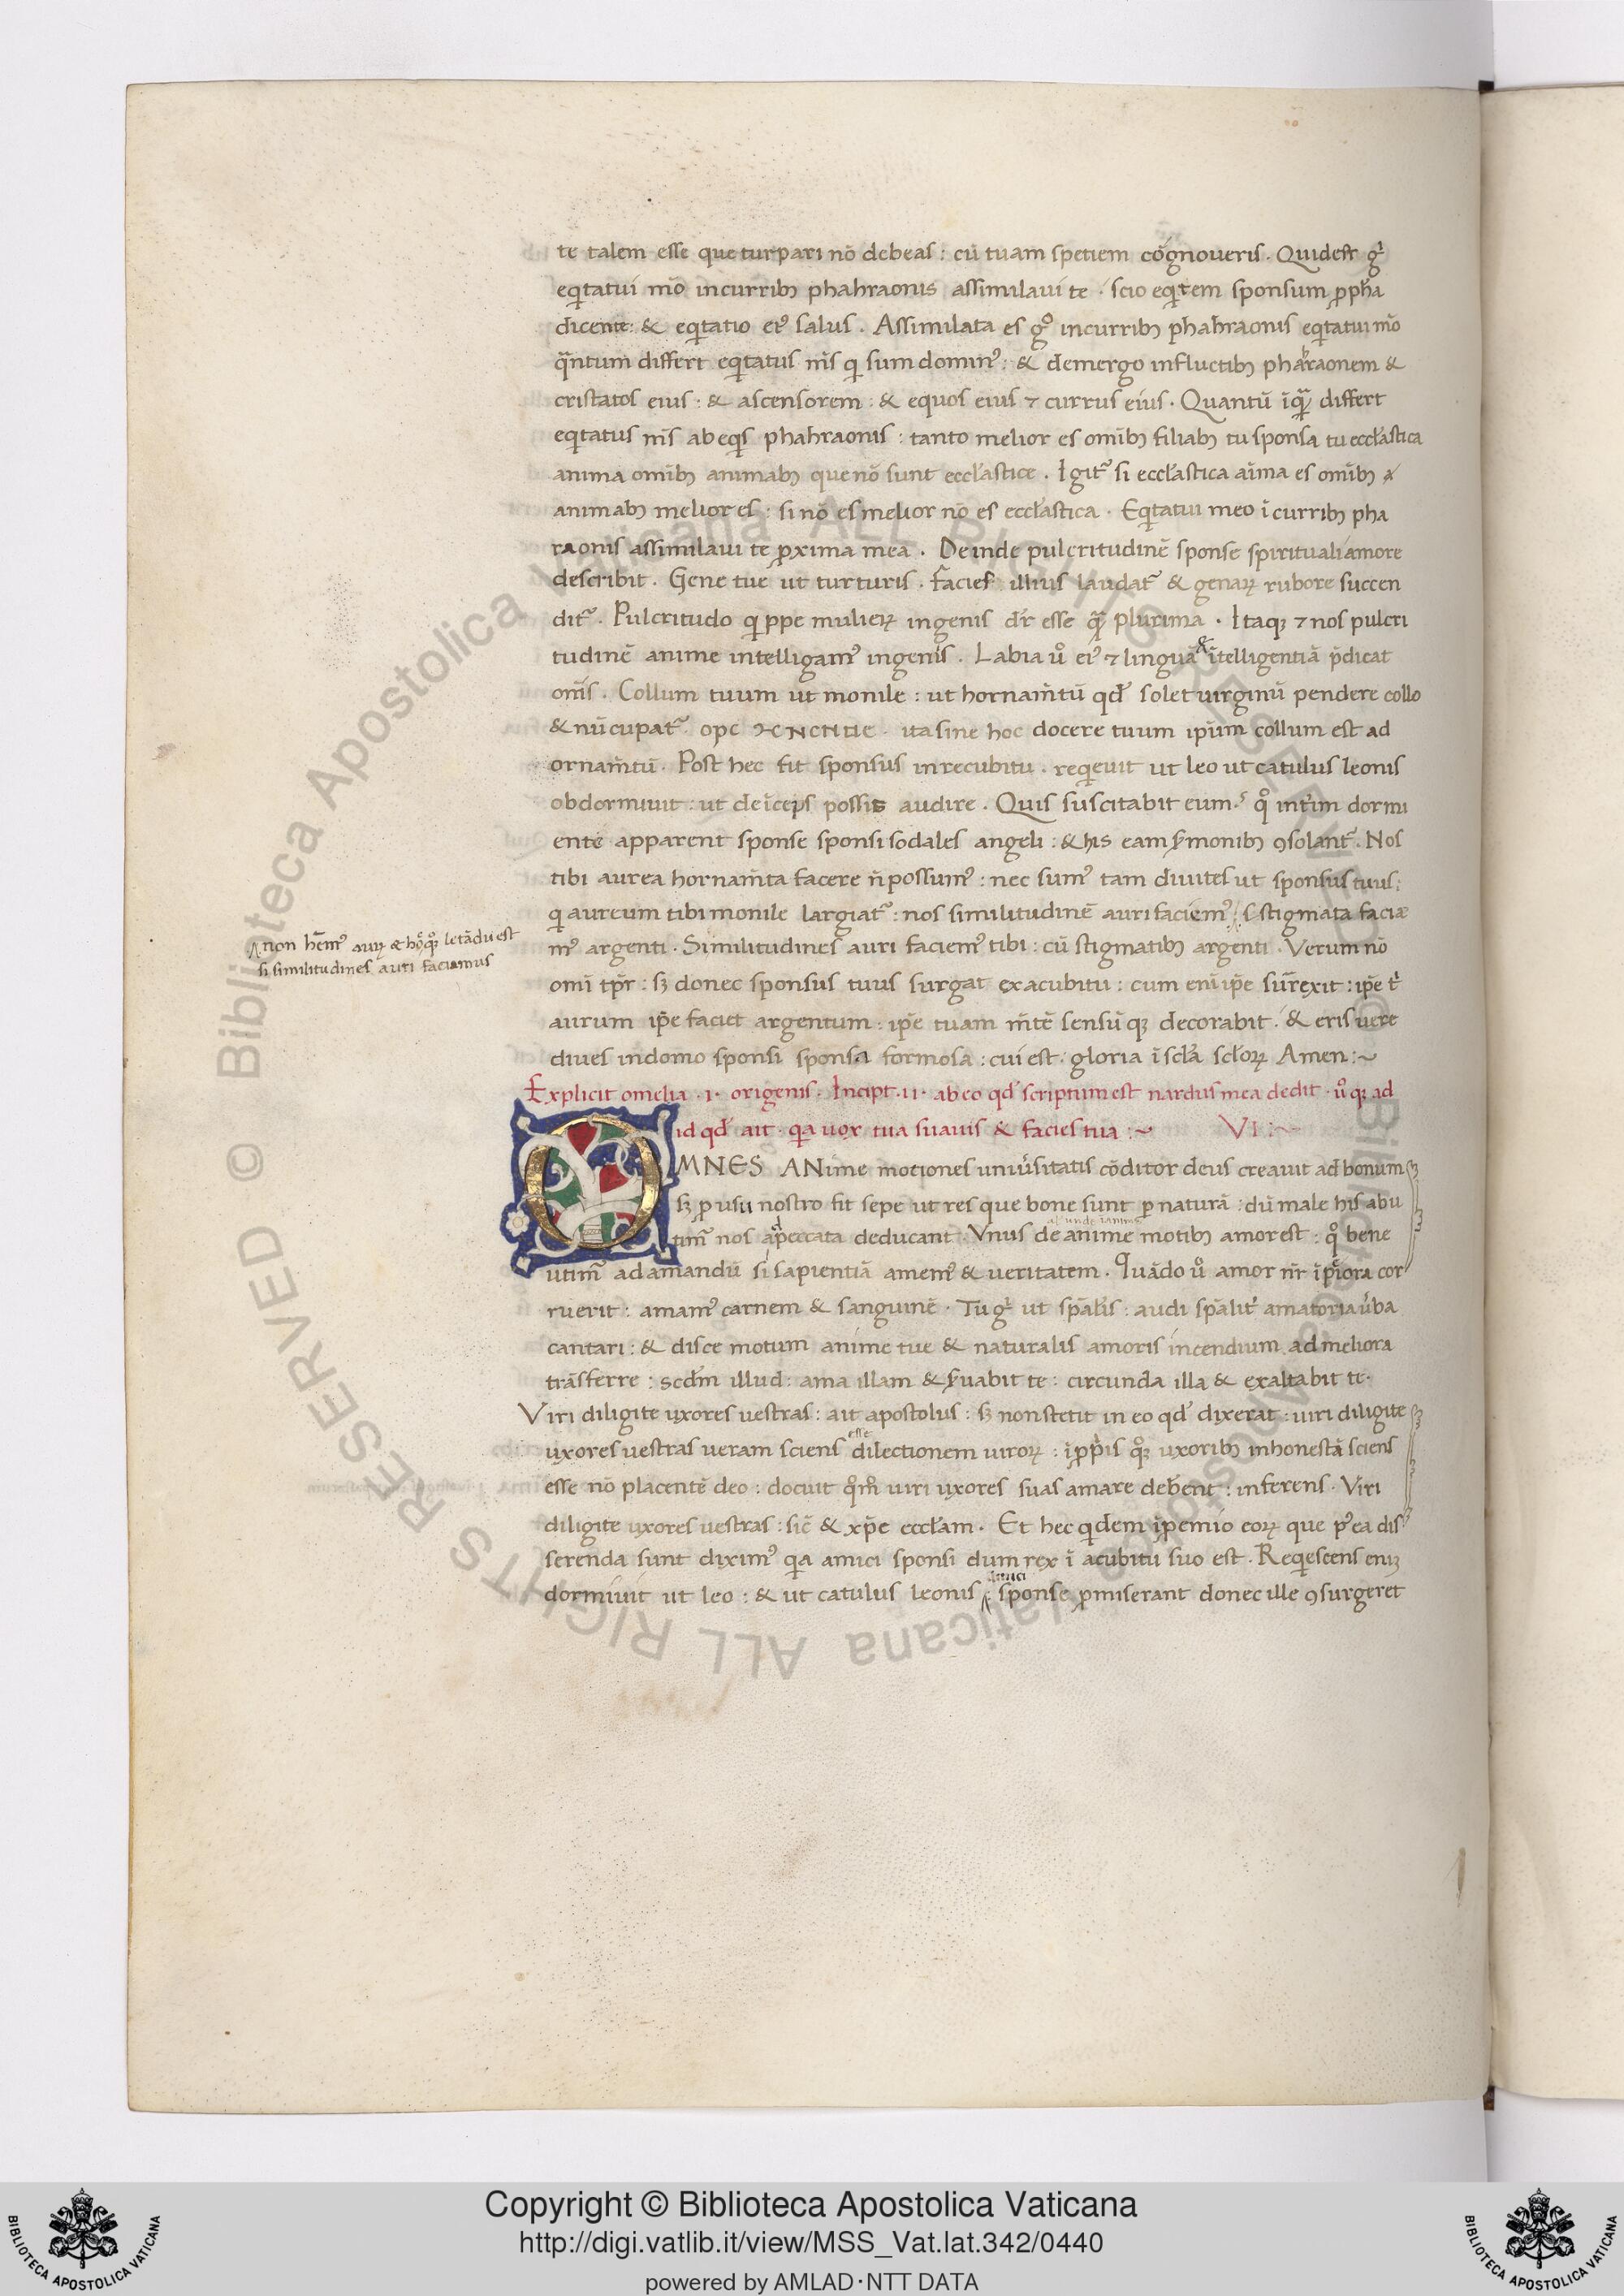 te talem esse que turpari nō debeas : cū tuam spetiem cognoveris . Quid est gͥ
eqͥtatui mō incurribꝫ phahraonis assimilavi te . scio eqͥtem sponsum ꝓpha
dicente : & eqͥtatio eiꝰ salus . Assimilata es gͦ incurribꝫ phahraonis eqͥtatui mō
qͣntum differt eqͥtatus mŝ qͥ sum dominꝰ : & demergo influctibꝫ phahraonem &
cristatos eius : & ascensorem : & equos eius ⁊ currus eius . Quantū īqͣꝫ differt
eqͥtatus mŝ ab eqͥs phahraonis : tanto melior es omībꝫ filiabꝫ tu sponsa tu eccl̄astica
anima omībꝫ animabꝫ que nō sunt eccl̄astice . Igitᷣ si eccl̄astica aīma es omībꝫ
animabꝫ melior es : si nō es melior nō es eccl̄astica . Eqͥtatui meo ī curribꝫ pha
raonis assimilavi te ꝓxima mea . Deinde pulcritudinē sponse spirituali amore
describit . Gene tue ut turturis . Facies illius laudatᷣ & genaꝝ rubore succen
ditᷣ . Pulcritudo qͥppe mulieꝝ ingenis dr̄ esse qͣꝫ plurima . Itaqꝫ ⁊ nos pulcri
tudinē anime intelligamꝰ ingenis . Labia uͦ eiꝰ ⁊ linguā & ītelligentiā p̄dicat
om̄s . Collum tuum ut monile : ut hornam̄tū qd̕ solet virginū pendere collo
& nūcupatᷣ ita sine hoc docere tuum ip̄um collum est ad
ornam̄tū . Post hec fit sponsus inrecubitu . reqͥevit ut leo ut catulus leonis
obdormivit : ut deīceps possis audire . Quis suscitabit eum . qͦ int̄im dormi
ente apparent sponse sponsi sodales angeli : & his eam ẜmonibꝫ ꝯsolantᷣ . Nos
tibi aurea hornam̄ta facere n̄ possumꝰ : nec sumꝰ tam divites ut sponsus tuus :
qͥ aureum tibi monile largiatᷣ : nos similitudinē auri faciemꝰ : stigmata faciæ
mꝰ argenti . Similitudines auri faciemꝰ tibi : cū stigmatibꝫ argenti . Verum nō
omī tp̄r : sꝫ donec sponsus tuus surgat exacubitu : cum enī ip̄e surrexit : ip̄e tͥ
aurum ip̄e faciet argentum : ip̄e tuam m̄tē sensūqꝫ decorabit . & eris vere
dives indomo sponsi sponsa formosa : cui est gloria ī scl̄a scl̄oꝝ Amen :~
non hēmꝰ auꝝ & letādū est
si similitudines auri faciamus
Explicit omelia . I . origenis . Incipt . II . ab eo qd̕ scriptum est nardus mea dedit . uͦqꝫ ad
id qd̕ ait . qͥa vox tua suavis & facies tua :~ VI :~
OMNES ANime motiones uniūsitatis cōditor deus creavit ad bonum
sꝫ ꝑ usu nostro fit sepe ut res que bone sunt ꝑ naturā : dū male his abu
timᷣ nos ad peccata deducant . Vnus de anime motibꝫ amor est : qͦ bene
utimᷣ ad amandū si sapientiā amemꝰ & veritatem . Quādo uͦ amor nr̄ ī peiora cor
ruerit : amamꝰ carnem & sanguinē . Tu gͥ ut spālis : audi spālit̄ amatoria ūba
cantari : & disce motum anime tue & naturalis amoris incendium ad meliora
trāsferre : scd̄m illud : ama illam & ẜvabit te : circunda illā & exaltabit te .
Viri diligite uxores vestras : ait apostolus : sꝫ non stetit in eo qd̕ dixerat : viri diligite
uxores vestras veram sciens esse dilectionem viroꝝ : uxoribꝫ inhonestā sciens
esse nō placentē deo : docuit qͦm̄ viri uxores suas amare debent : inferens . Viri
diligite uxores vestras : sic̄ & xp̄e eccl̄am . Et hec qͥdem ī p̄emio eoꝝ que pꝰea dis
serenda sunt diximꝰ qͥa amici sponsi dum rex ī acubitu suo est . Reqͥescens eniꝫ
dormivit ut leo : & ut catulus leonis : amici sponse ꝓmiserant donec ille ꝯsurgeret
© Biblioteca Apostolica Vaticana ALL RIGHTS RESERVED
Copyright © Biblioteca Apostolica Vaticana
http://digi.vatlib.it/view/MSS_Vat.lat.342/0440
powered by AMLAD·NTT DATA
BIBLIOTECA APOSTOLICA VATICANA
BIBLIOTECA APOSTOLICA VATICANA